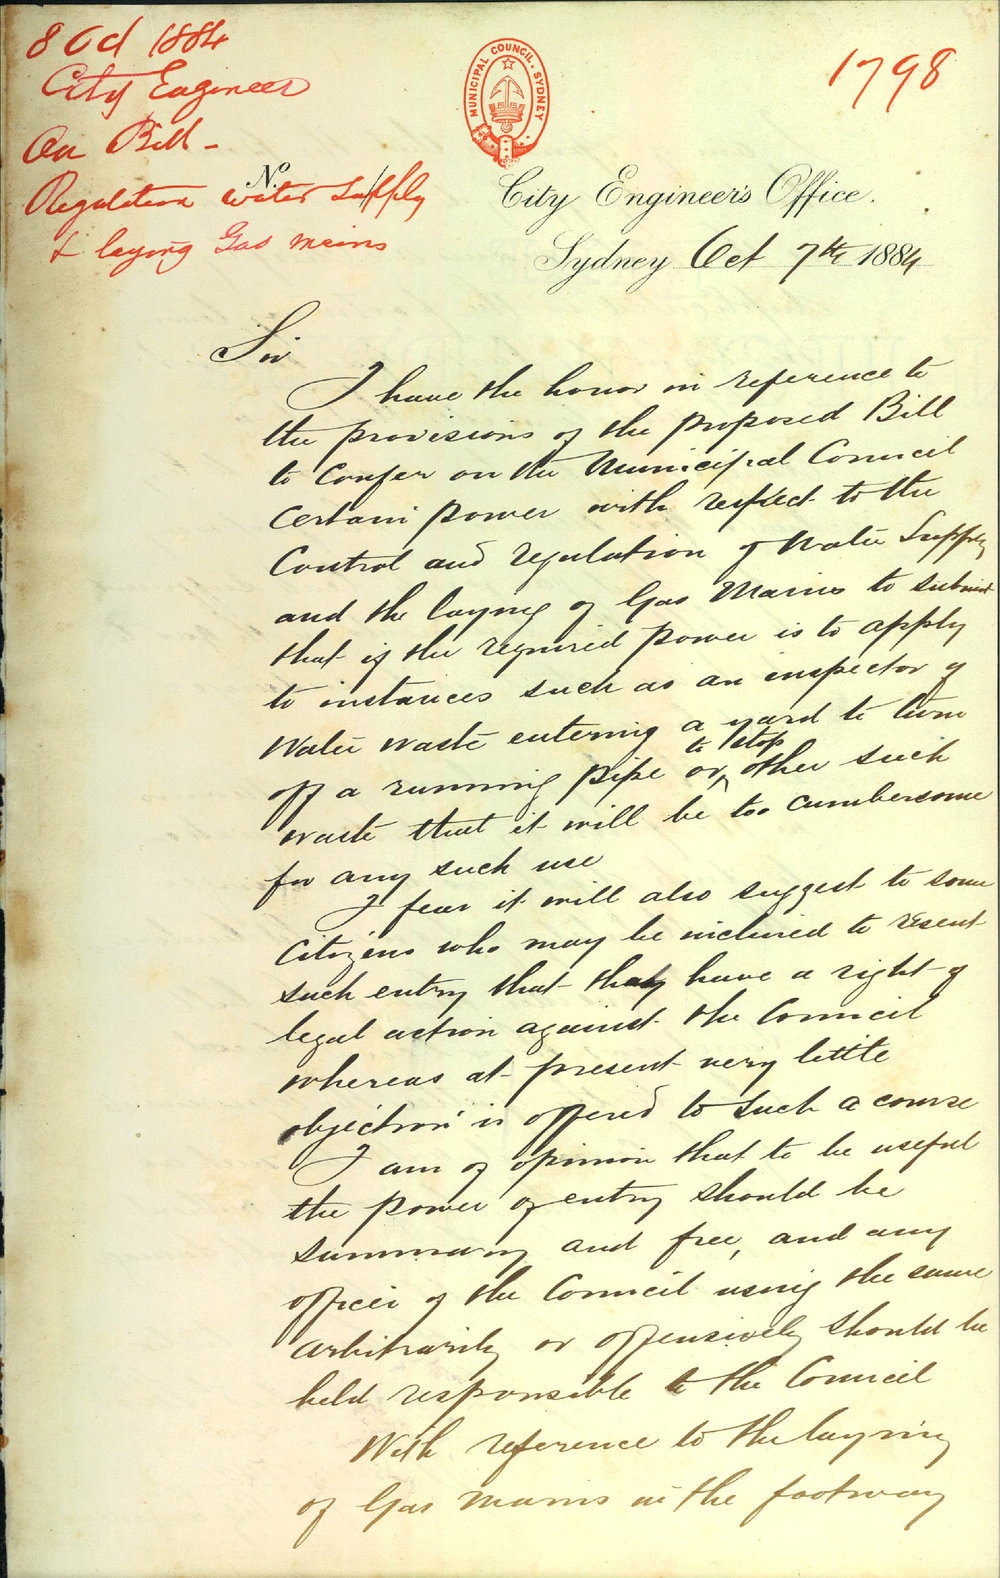 8 Oct 1884
City Engineer
On Bill -
Regulation water Supply
& laying Gas mains
1798
MUNICIPAL COUNCIL. SYDNEY
No.
City Engineer's Office.
Sydney Oct 7th 1884
Sir
I have the honor in reference to
the provisions of the proposed Bill
to Confer on the Municipal Council
Certain power with respect to the
Control and regulation of Water Supply
and the laying of Gas Mains to submit
that if the required power is to apply
to instances such as an inspector of
Water waste entering a yard to turn
off a running pipe or to stop other such
waste that it will be too cumbersome
for any such use
I fear it will also suggest to some
Citizens who may be inclined to resent
such entry that they have a right of
legal action against the Council
whereas at present very little
objection is offered to such a course
I am of opinion that to be useful
the power of entry should be
summary and free, and any
officer of the Council using the same
arbitrarily or offensively should be
held responsible to the Council
With reference to the laying
of Gas mains in the footway